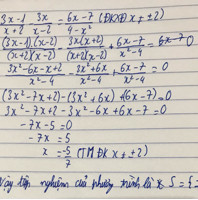 3x-1/x+2 - 3x/x-2 = 6x-7/4-x² (ĐKXĐ x ≠ ±2)
(3x-1).(x-2)/(x+2)(x-2) - 3x(x+2)/(x+2)(x-2) + 6x-7/x²-4 = 0
3x²-6x-x+2/x²-4 - 3x²+6x/x²-4 + 6x-7/x²-4 = 0
(3x²-7x+2)-(3x²+6x)+(6x-7)=0
3x²-7x+2-3x²-6x+6x-7=0
-7x-5=0
-7x=5
x = -5/7 (TMĐK x ≠ ±2)
Vậy tập nghiệm của phương trình là S={